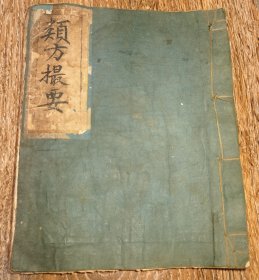 類方撮要